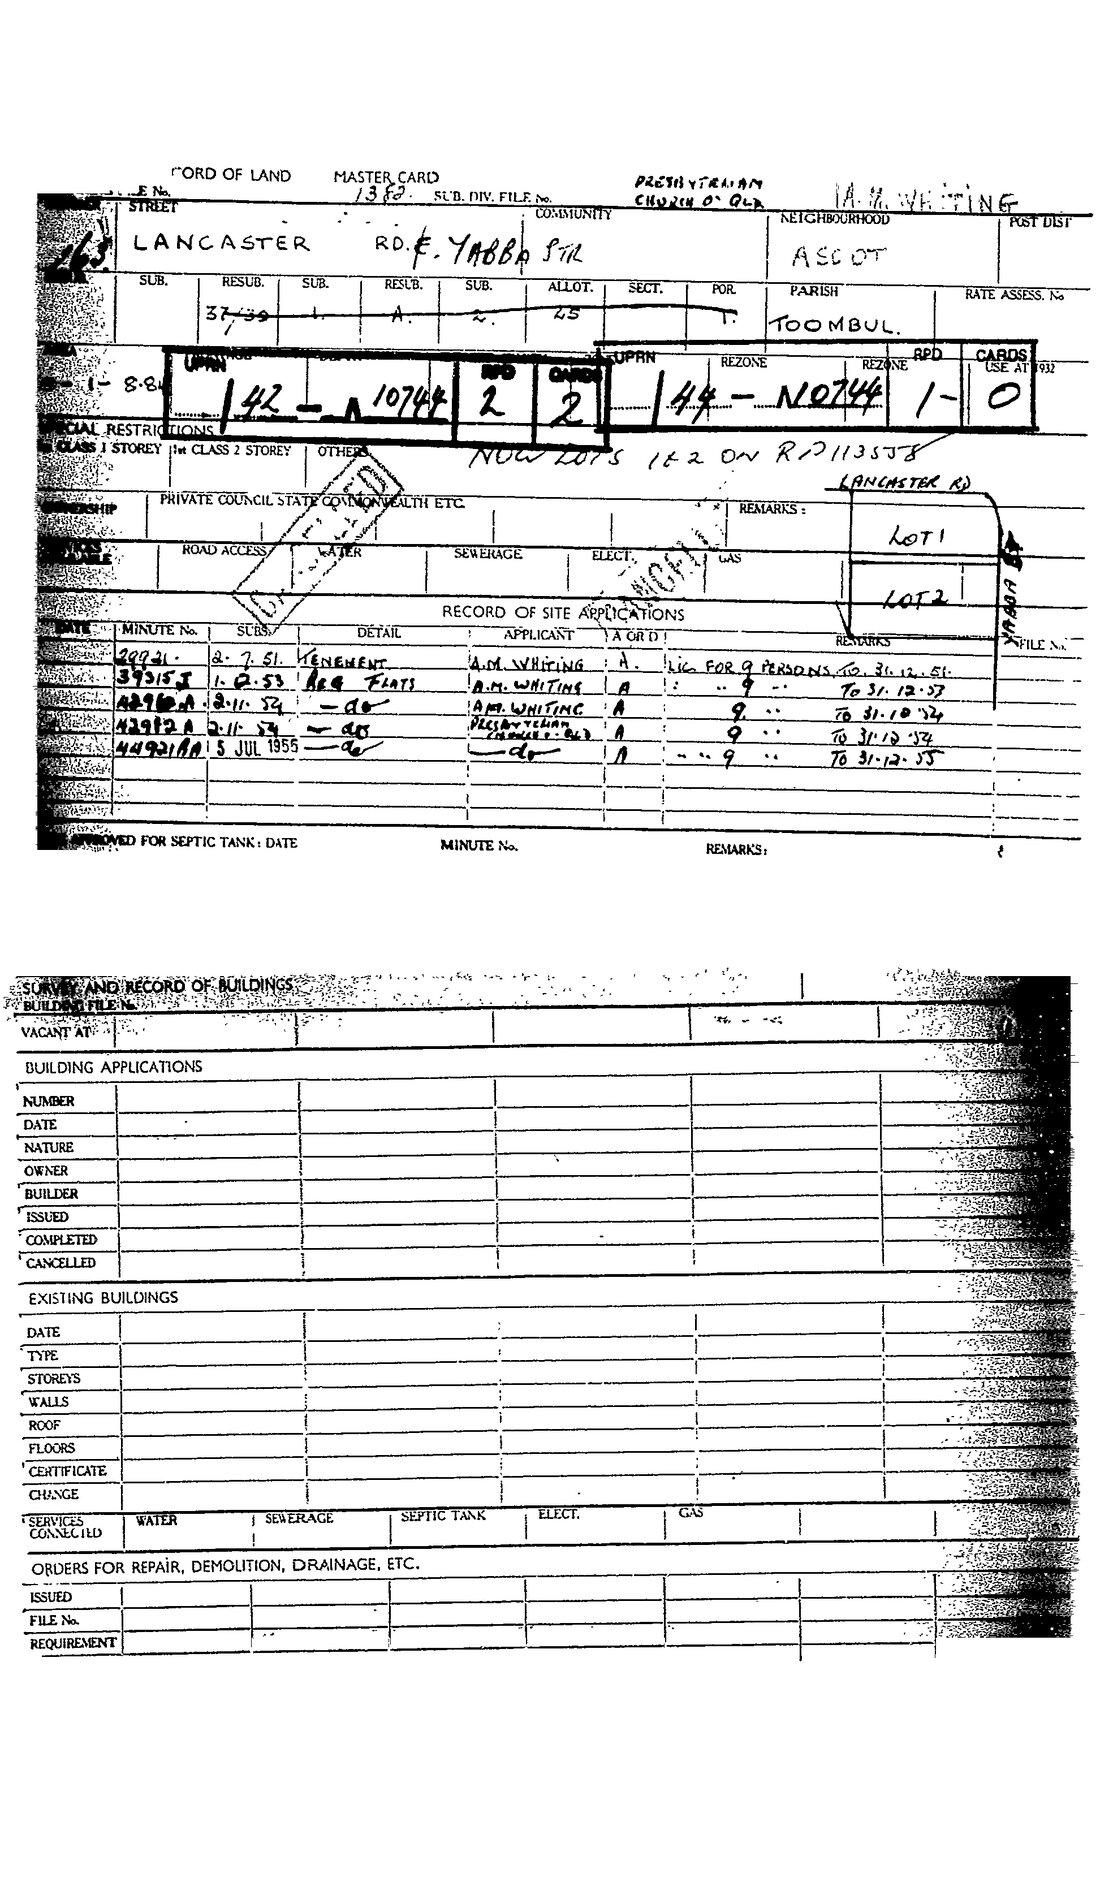 ORD OF LAND MASTER CARD
E No. 1382. SUB. DIV. FILE No. PRESBYTERIAN CHURCH O' QLD A.M. WHITING
STREET COMMUNITY NEIGHBOURHOOD POST DIST
LANCASTER RD. & YABBA STR ASCOT
SUB. RESUB. SUB. RESUB. SUB. ALLOT. SECT. POR. PARISH RATE ASSESS. No
37/39 1. A. 2. 25 1. TOOMBUL.
AREA UPRN RPD CARDS UPRN REZONE REZONE RPD CARDS USE AT 1932
- 1 - 8.8 142 - N 10744 2 2 144 - N0744 1 - 0
SPECIAL RESTRICTIONS
CLASS 1 STOREY 1st CLASS 2 STOREY OTHERS NOW LOTS 1 & 2 ON RP113558
LANCASTER RD
PRIVATE COUNCIL STATE COMMONWEALTH ETC. REMARKS :
OWNERSHIP
LOT 1
SERVICES AVAILABLE ROAD ACCESS WATER SEWERAGE ELECT. GAS
CANCELLED
LOT 2
YABBA ST
RECORD OF SITE APPLICATIONS
DATE MINUTE No. SUBS. DETAIL APPLICANT A OR D REMARKS FILE No.
29931. 2.7.51. TENEMENT A.M. WHITING A. LIC. FOR 9 PERSONS TO 31.12.51.
39315 I 1.12.53 REG FLATS A.M. WHITING A " " 9 " TO 31.12.53
42982 A 2.11.54 — do A.M. WHITING A 9 " TO 31.10.54
42982 A 2.11.54 — do PRESBYTERIAN CHURCH O' QLD A 9 " TO 31.12.54
44921 AA 5 JUL 1955 — do — do A " " 9 " TO 31.12.55
APPROVED FOR SEPTIC TANK : DATE MINUTE No. REMARKS :
SURVEY AND RECORD OF BUILDINGS
BUILDING FILE No.
VACANT AT
BUILDING APPLICATIONS
NUMBER
DATE
NATURE
OWNER
BUILDER
ISSUED
COMPLETED
CANCELLED
EXISTING BUILDINGS
DATE
TYPE
STOREYS
WALLS
ROOF
FLOORS
CERTIFICATE
CHANGE
SERVICES CONNECTED WATER SEWERAGE SEPTIC TANK ELECT. GAS
ORDERS FOR REPAIR, DEMOLITION, DRAINAGE, ETC.
ISSUED
FILE No.
REQUIREMENT